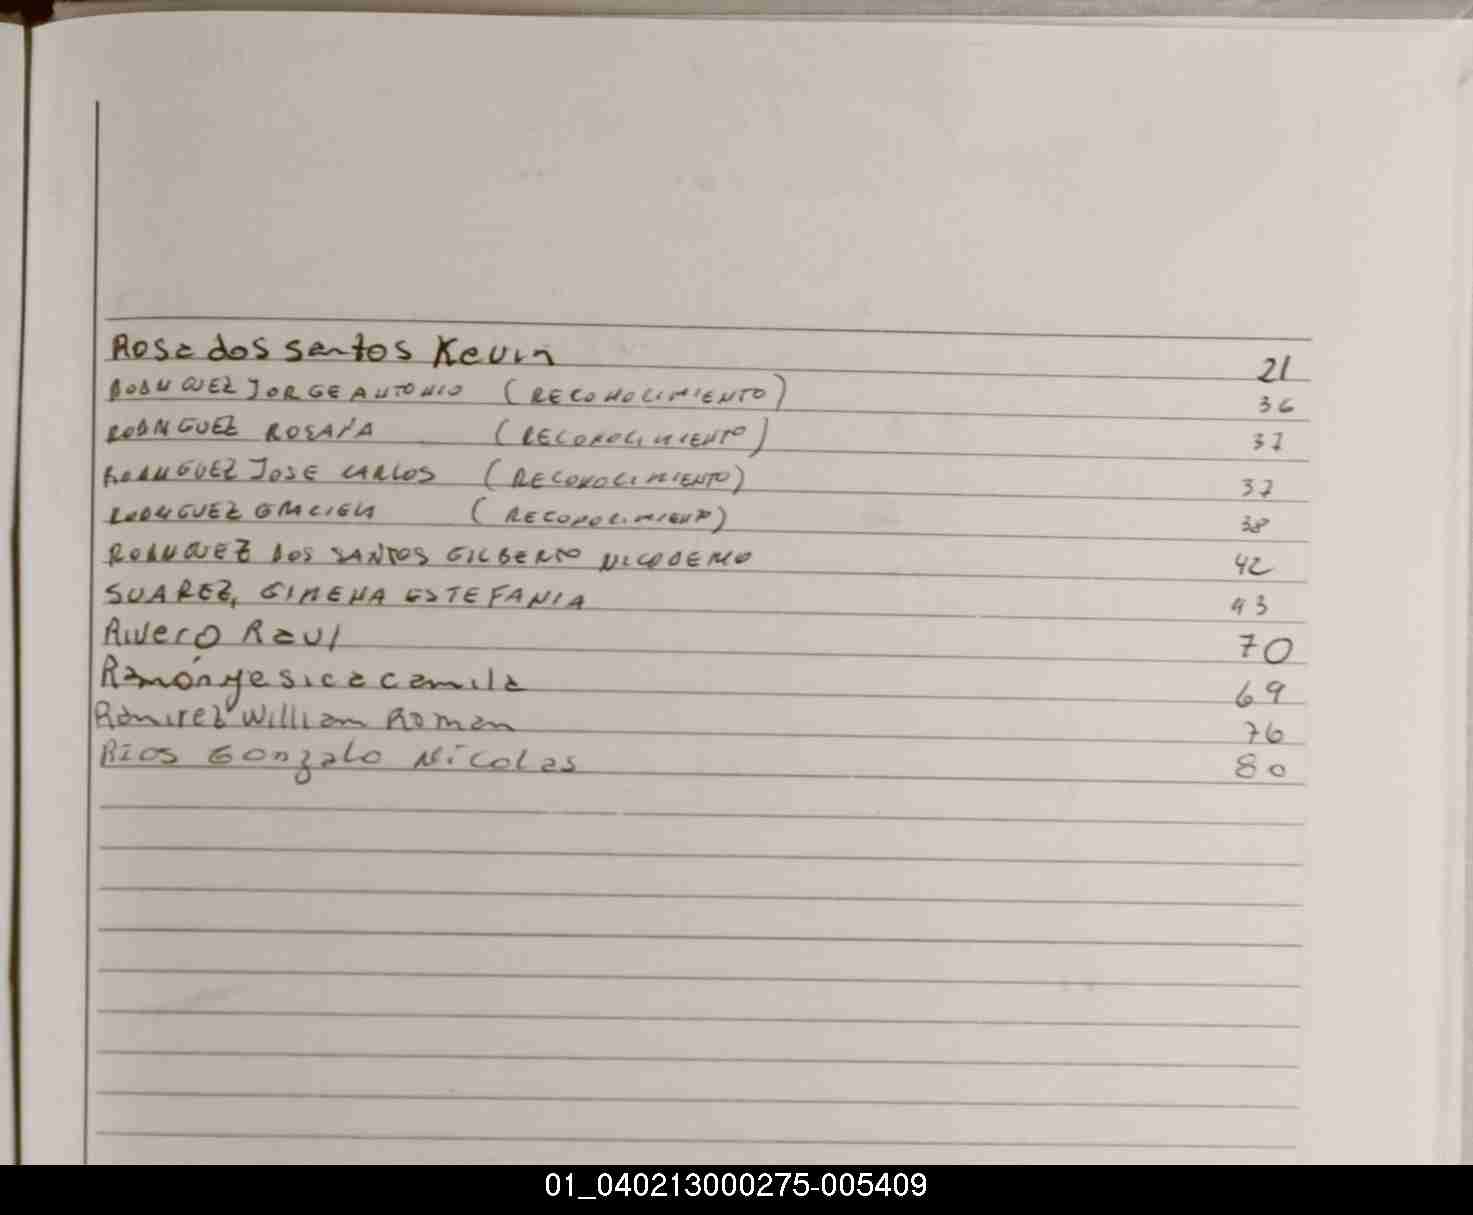 Rosa dos santos Kevin 21
RODRIGUEZ JORGE ANTONIO (RECONOCIMIENTO) 36
RODRIGUEZ ROSANA (RECONOCIMIENTO) 37
RODRIGUEZ JOSE CARLOS (RECONOCIMIENTO) 37
RODRIGUEZ GRACIELA (RECONOCIMIENTO) 38
RODRIGUEZ DOS SANTOS GILBERTO NICODEMO 42
SUAREZ, GIMENA ESTEFANIA 43
Rivero Raul 70
Ramón yesica camila 69
Ramirez William Roman 76
RIOS Gonzalo Nicolas 80
01_040213000275-005409